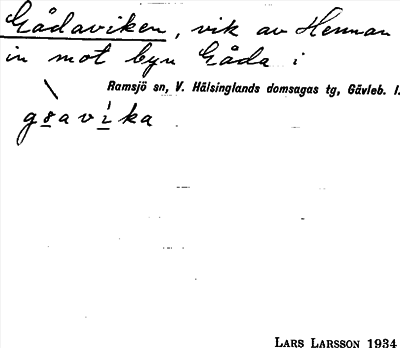 Gådaviken, vik av Hennan
in mot byn Gåda i
Ramsjö sn, V. Hälsinglands domsagas tg, Gävleb. l.
g8avika
LARS LARSSON 1934